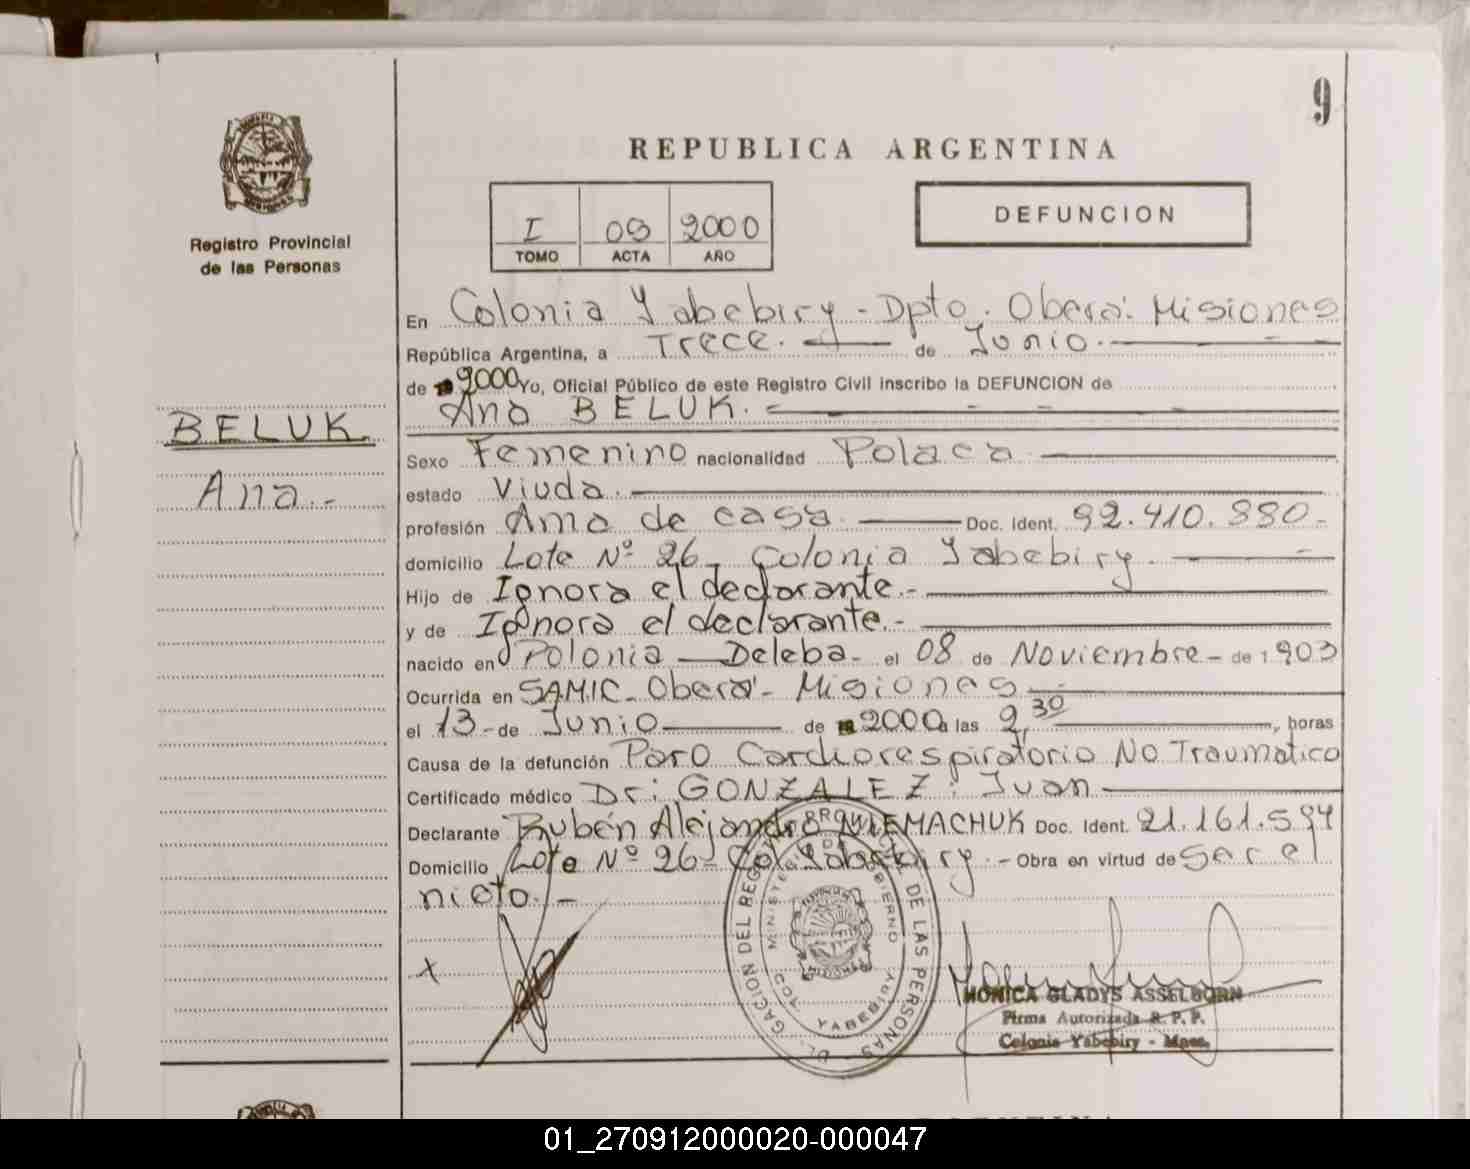 9
REPUBLICA ARGENTINA
Registro Provincial
de las Personas
I 09 2000
TOMO ACTA AÑO
DEFUNCION
BELUK
Ana.-
En Colonia Yabebiry - Dpto. Oberá: Misiones
República Argentina, a Trece. de Junio.
de 2000 Yo, Oficial Público de este Registro Civil inscribo la DEFUNCION de
Ana BELUK.
Sexo Femenino nacionalidad Polaca
estado Viuda.
profesión Ama de casa. Doc. Ident. 92.410.880.-
domicilio Lote Nº 26- Colonia Yabebiry.
Hijo de Ignora el declarante.-
y de Ignora el declarante.-
nacido en Polonia - Deleba- el 08 de Noviembre - de 1903
Ocurrida en SAMIC- Oberá- Misiones
el 13- de Junio de 2000 a las 9,30, horas
Causa de la defunción Paro Cardiorespiratorio No Traumatico
Certificado médico Dr: GONZALEZ: Juan
Declarante Rubén Alejandro NIEMACHUK Doc. Ident. 21.161.594
Domicilio Lote Nº 26- Col. Yabebiry.- Obra en virtud de Ser el
nieto.-
x
DEL REGISTRO DE LAS PERSONAS
MINISTERIO DE GOBIERNO
COL. YABEBIRY
MISIONES
MONICA GLADYS ASSELBORN
Firma Autorizada R. P. P.
Colonia Yabebiry - Mnes.
01_270912000020-000047